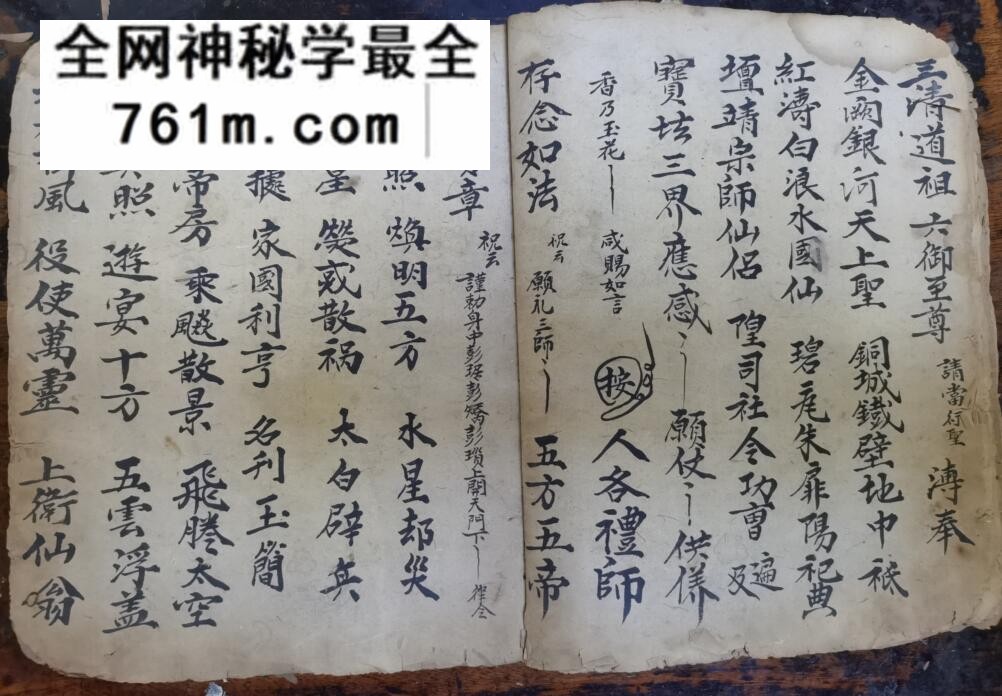 全网神秘学最全
761m.com
三清道祖 六御至尊 請當行聖 溥奉
金闕銀河天上聖 銅城鐵壁地中祇
紅濤白浪水國仙 碧瓦朱扉陽祀典
壇靖宗師仙侶 隍司社令功曹 遍及
寶坛三界應感 願仗 供俻
香乃玉花 咸賜如言 按 人各禮師
存念如法 祝云 願礼三師 五方五帝
祝云 謹勅身中彭琚彭矯彭瓆上開天門下
章
照 煥明五方 水星却災
星 熒惑散禍 太白辟兵
據 家國利亨 名刋玉簡
帝房 乘飈散景 飛騰太空
照 遊宴十方 五雲浮盖
風 役使萬靈 上衛仙翁